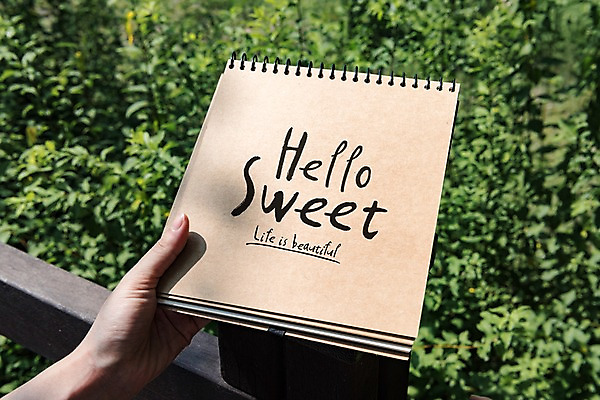 Hello
Sweet
Life is beautiful